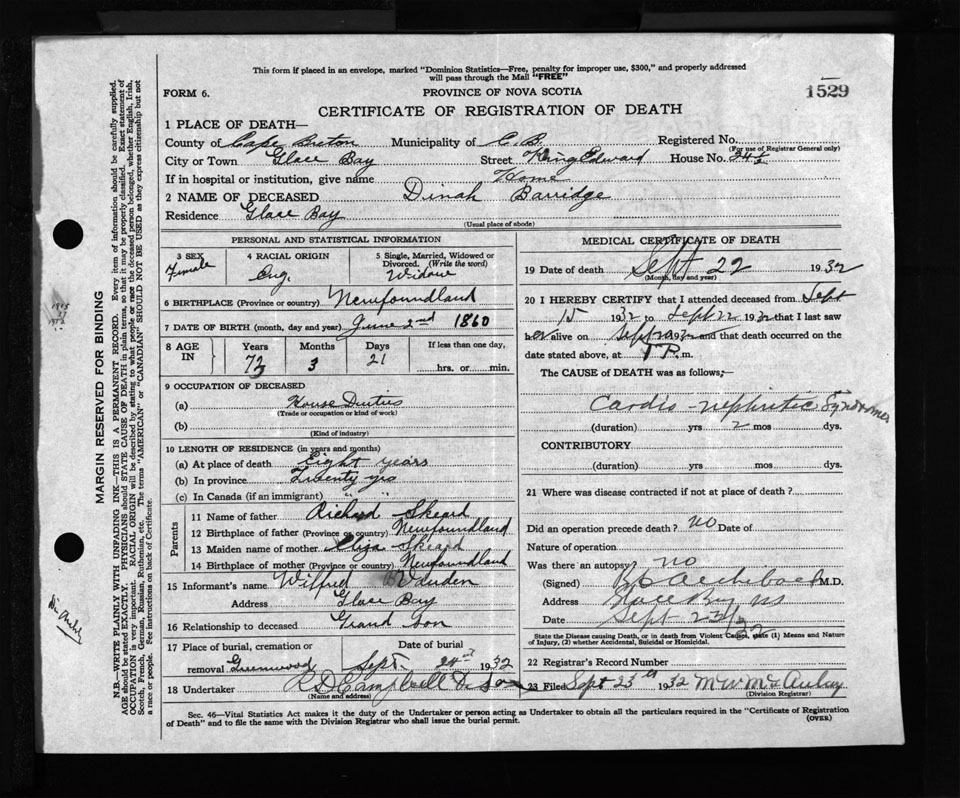 This form if placed in an envelope, marked "Dominion Statistics—Free, penalty for improper use, $300," and properly addressed
will pass through the Mail "FREE"
1529
FORM 6.
PROVINCE OF NOVA SCOTIA
CERTIFICATE OF REGISTRATION OF DEATH
1 PLACE OF DEATH—
County of Cape Breton Municipality of C.B. Registered No.
(For use of Registrar General only)
City or Town Glace Bay Street King Edward House No.
If in hospital or institution, give name Home
2 NAME OF DECEASED Dinah Barridge
Residence Glace Bay
(Usual place of abode)
PERSONAL AND STATISTICAL INFORMATION
3 SEX Female
4 RACIAL ORIGIN Eng.
5 Single, Married, Widowed or Divorced. (Write the word) Widow
6 BIRTHPLACE (Province or country) Newfoundland
7 DATE OF BIRTH (month, day and year) June 2nd 1860
8 AGE IN Years Months Days If less than one day,
72 3 21 hrs. or min.
9 OCCUPATION OF DECEASED
(a) House Duties
(Trade or occupation or kind of work)
(b)
(Kind of industry)
10 LENGTH OF RESIDENCE (in years and months)
(a) At place of death Eight years
(b) In province Twenty yrs
(c) In Canada (if an immigrant) " "
Parents
11 Name of father Richard Skeard
12 Birthplace of father (Province or country) Newfoundland
13 Maiden name of mother Eliza Skeard
14 Birthplace of mother (Province or country) Newfoundland
15 Informant's name Wilfred
Address Glace Bay
16 Relationship to deceased Grand Son
17 Place of burial, cremation or Date of burial
removal Greenwood Sept 24th 1932
18 Undertaker
(Name and address)
MEDICAL CERTIFICATE OF DEATH
19 Date of death Sept 22 1932
(Month, day and year)
20 I HEREBY CERTIFY that I attended deceased from Sept
15 1932 to Sept 22 1932 that I last saw
her alive on Sept 1932 and that death occurred on the
date stated above, at 1 P. m.
The CAUSE of DEATH was as follows;—
Cardio-nephritic Syndrome
(duration) yrs 2 mos dys.
CONTRIBUTORY
(duration) yrs mos dys.
21 Where was disease contracted if not at place of death?
Did an operation precede death? no Date of
Nature of operation
Was there an autopsy no
(Signed) Archibald M.D.
Address Glace Bay NS
Date Sept 23/32
State the Disease causing Death, or in death from Violent Causes, state (1) Means and Nature
of Injury, (2) whether Accidental, Suicidal or Homicidal.
22 Registrar's Record Number
23 Filed Sept 23th 1932 M W McAulay
(Division Registrar)
Sec. 46—Vital Statistics Act makes it the duty of the Undertaker or person acting as Undertaker to obtain all the particulars required in the "Certificate of Registration
of Death" and to file the same with the Division Registrar who shall issue the burial permit.
(OVER)
MARGIN RESERVED FOR BINDING
N.B.—WRITE PLAINLY WITH UNFADING INK—THIS IS A PERMANENT RECORD. Every item of information should be carefully supplied.
AGE should be stated EXACTLY. PHYSICIANS should STATE CAUSE OF DEATH in plain terms, so that it may be properly classified. Exact statement of
OCCUPATION is very important. RACIAL ORIGIN will be described by stating to what people or race the deceased person belonged, whether English, Irish,
Scotch, French, German, Russian, Ruthenian, etc. The terms "AMERICAN" or "CANADIAN" SHOULD NOT BE USED as they express citizenship but not
a race or people. See instructions on back of Certificate.